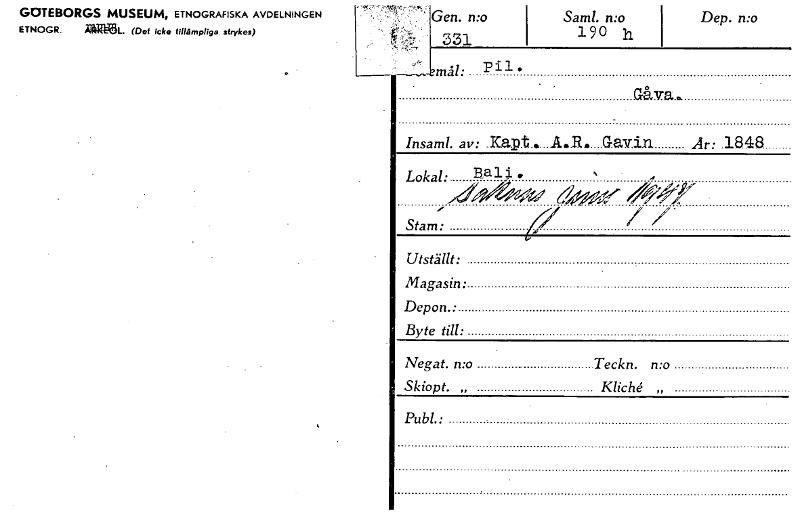 GÖTEBORGS MUSEUM, ETNOGRAFISKA AVDELNINGEN
ETNOGR. ARKEOL. (Det icke tillämpliga strykes)
Gen. n:o Saml. n:o Dep. n:o
331 190 h
emål: Pil.
Gåva.
Insaml. av: Kapt. A.R. Gavin År: 1848
Lokal: Bali.
Saknas
Stam:
Utställt:
Magasin:
Depon.:
Byte till:
Negat. n:o Teckn. n:o
Skiopt. „ Kliché „
Publ.: